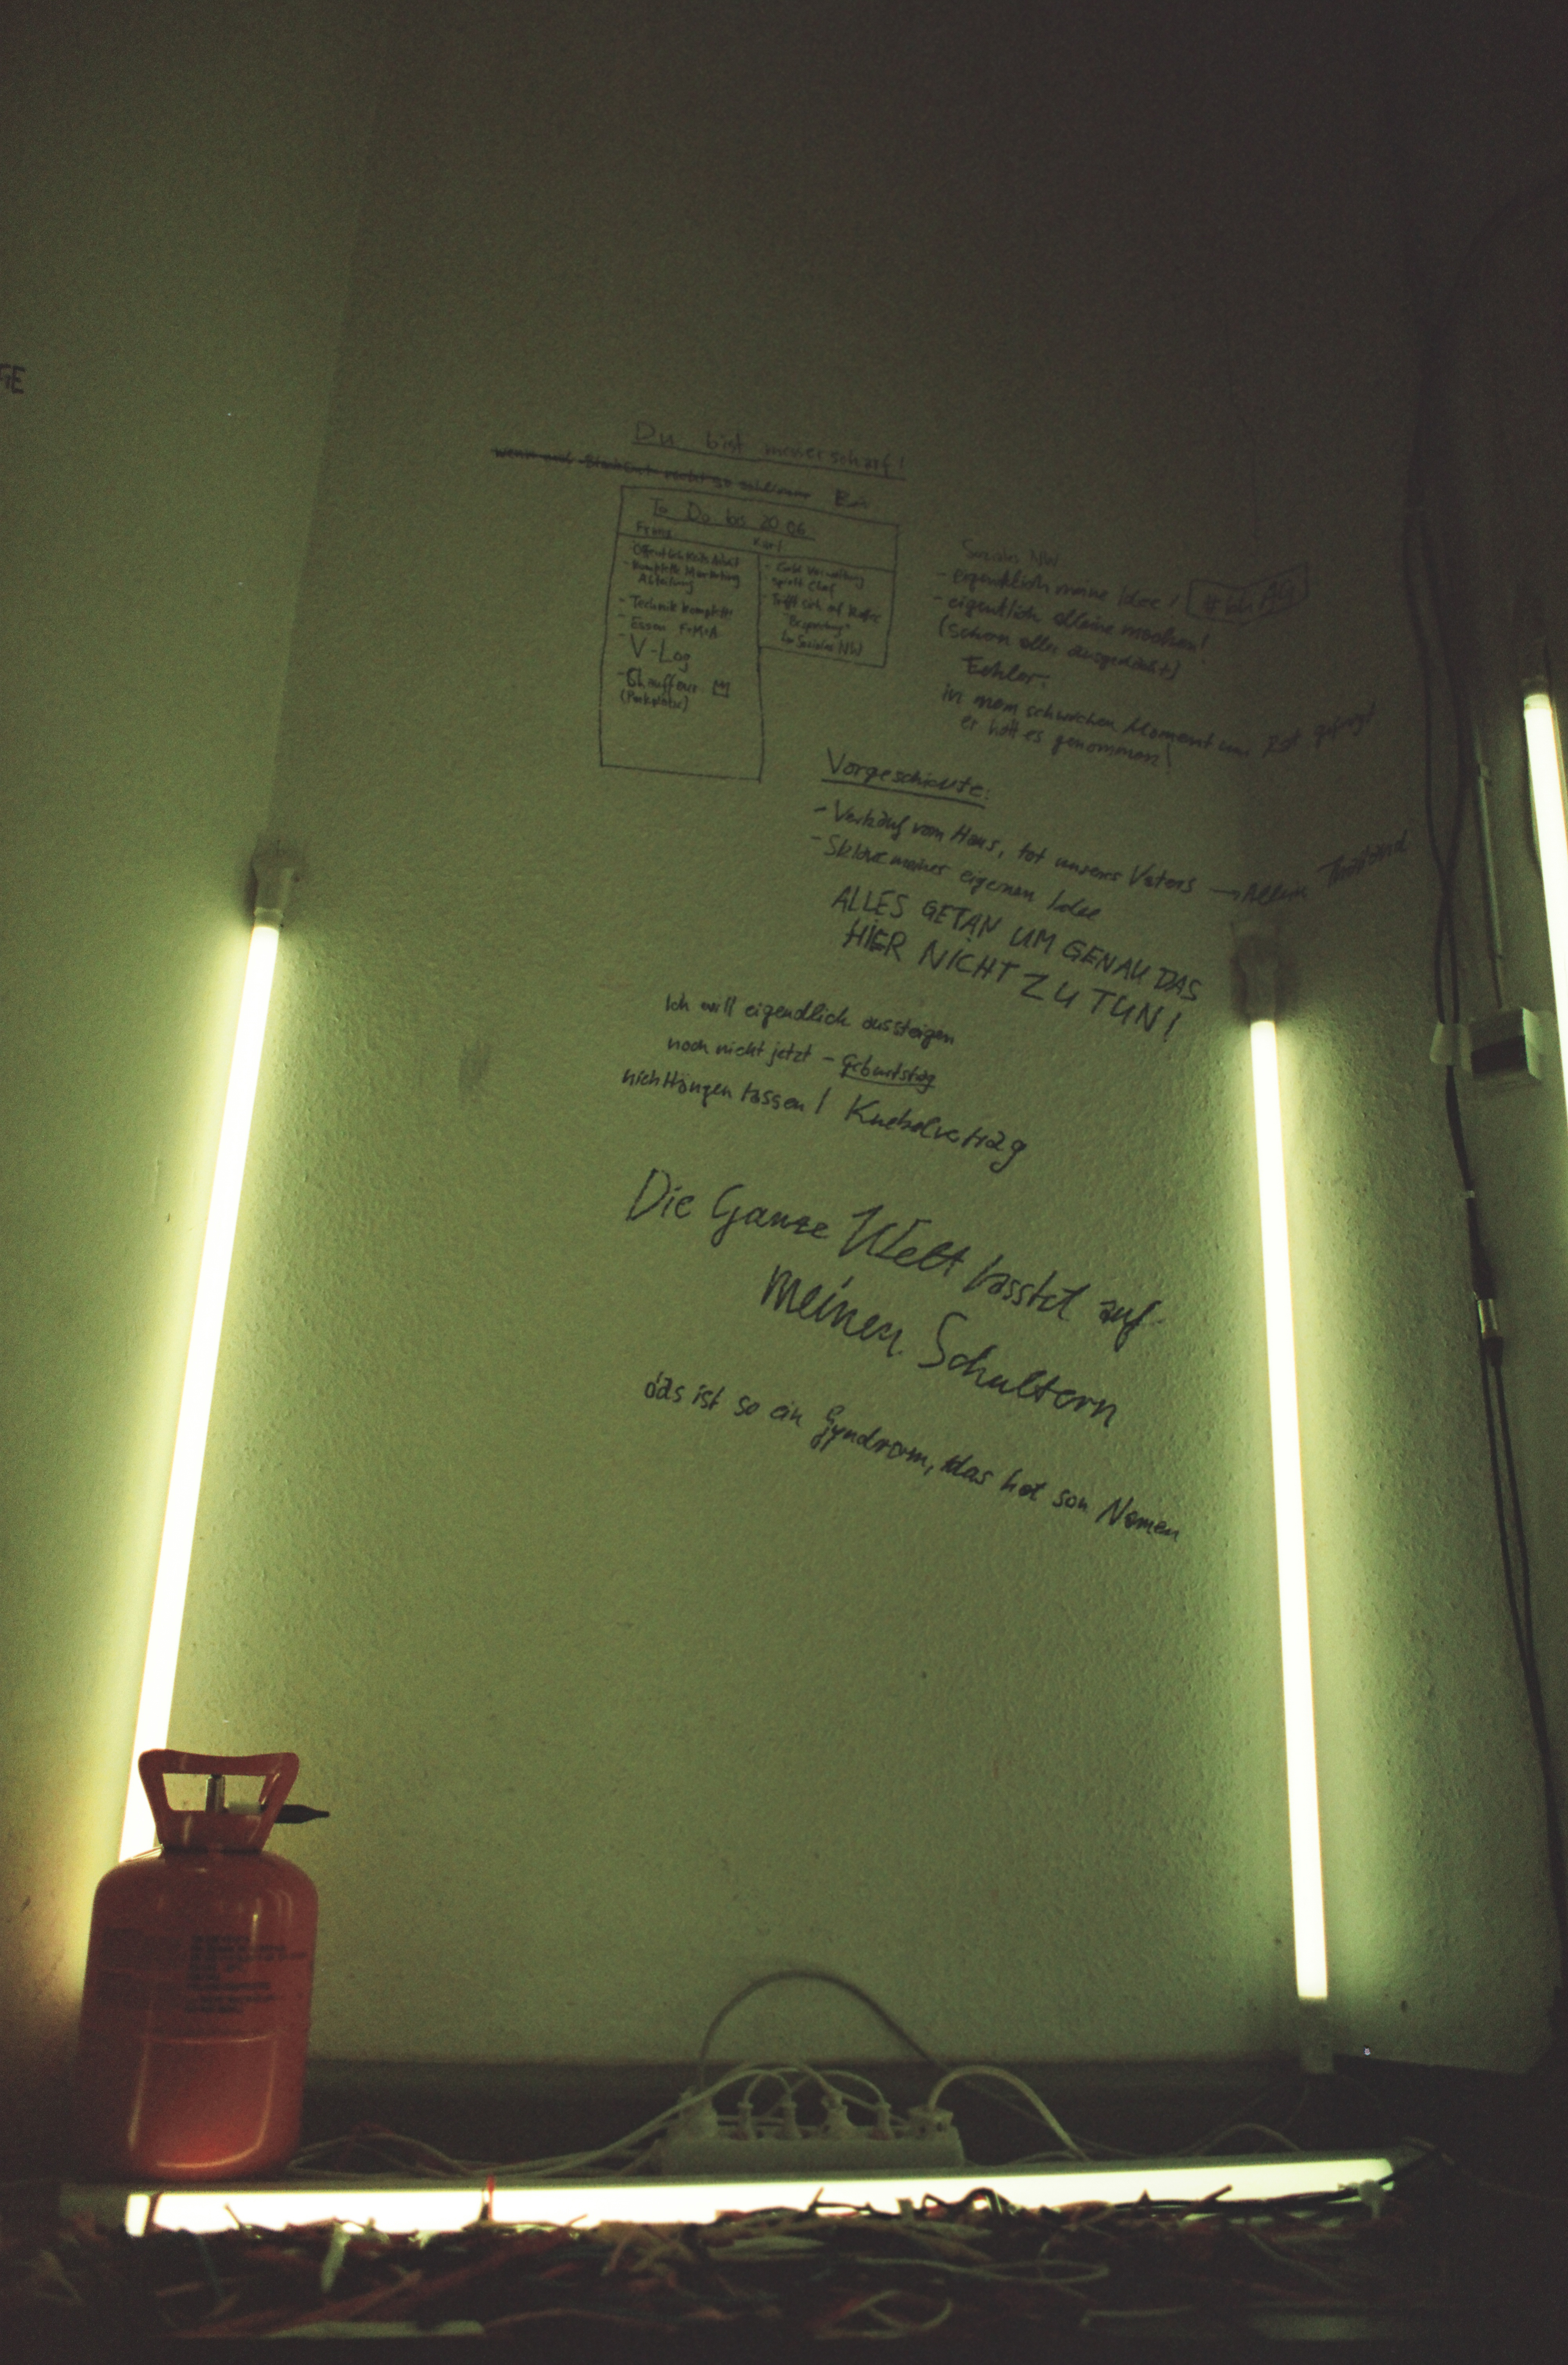 GE
Du bist messerscharf!
wenn nicht so schlimm Bin
To Do bis 20.06.
Franz
Karl
Öffentlichkeitsarbeit
- Komplette Marketing
Abteilung
- Technik komplett
- Essen F+M+A
- V-Log
- Chauffeur
(Parkplätze)
- Geld Verwaltung
spielt Chef
- Trifft sich auf Kaffee
"Besprechung"
im Soziales NW
Soziales NW
- eigentlich meine Idee!
- eigentlich alleine machen!
(schon alles ausgedacht)
Fehler:
in mem schwachen Moment um Rat gefragt
er hat es genommen!
Vorgeschichte:
- Verkauf vom Haus, tot unseres Vaters → Allein
- Sklave meiner eigenen Idee
ALLES GETAN UM GENAU DAS
HIER NICHT ZU TUN!
Ich will eigendlich aussteigen
noch nicht jetzt - Geburtstag
nicht Hängen lassen! Knebelvertrag
Die Ganze Welt lasstet auf
meinen Schultern
das ist so ein Syndrom, das hat son Namen